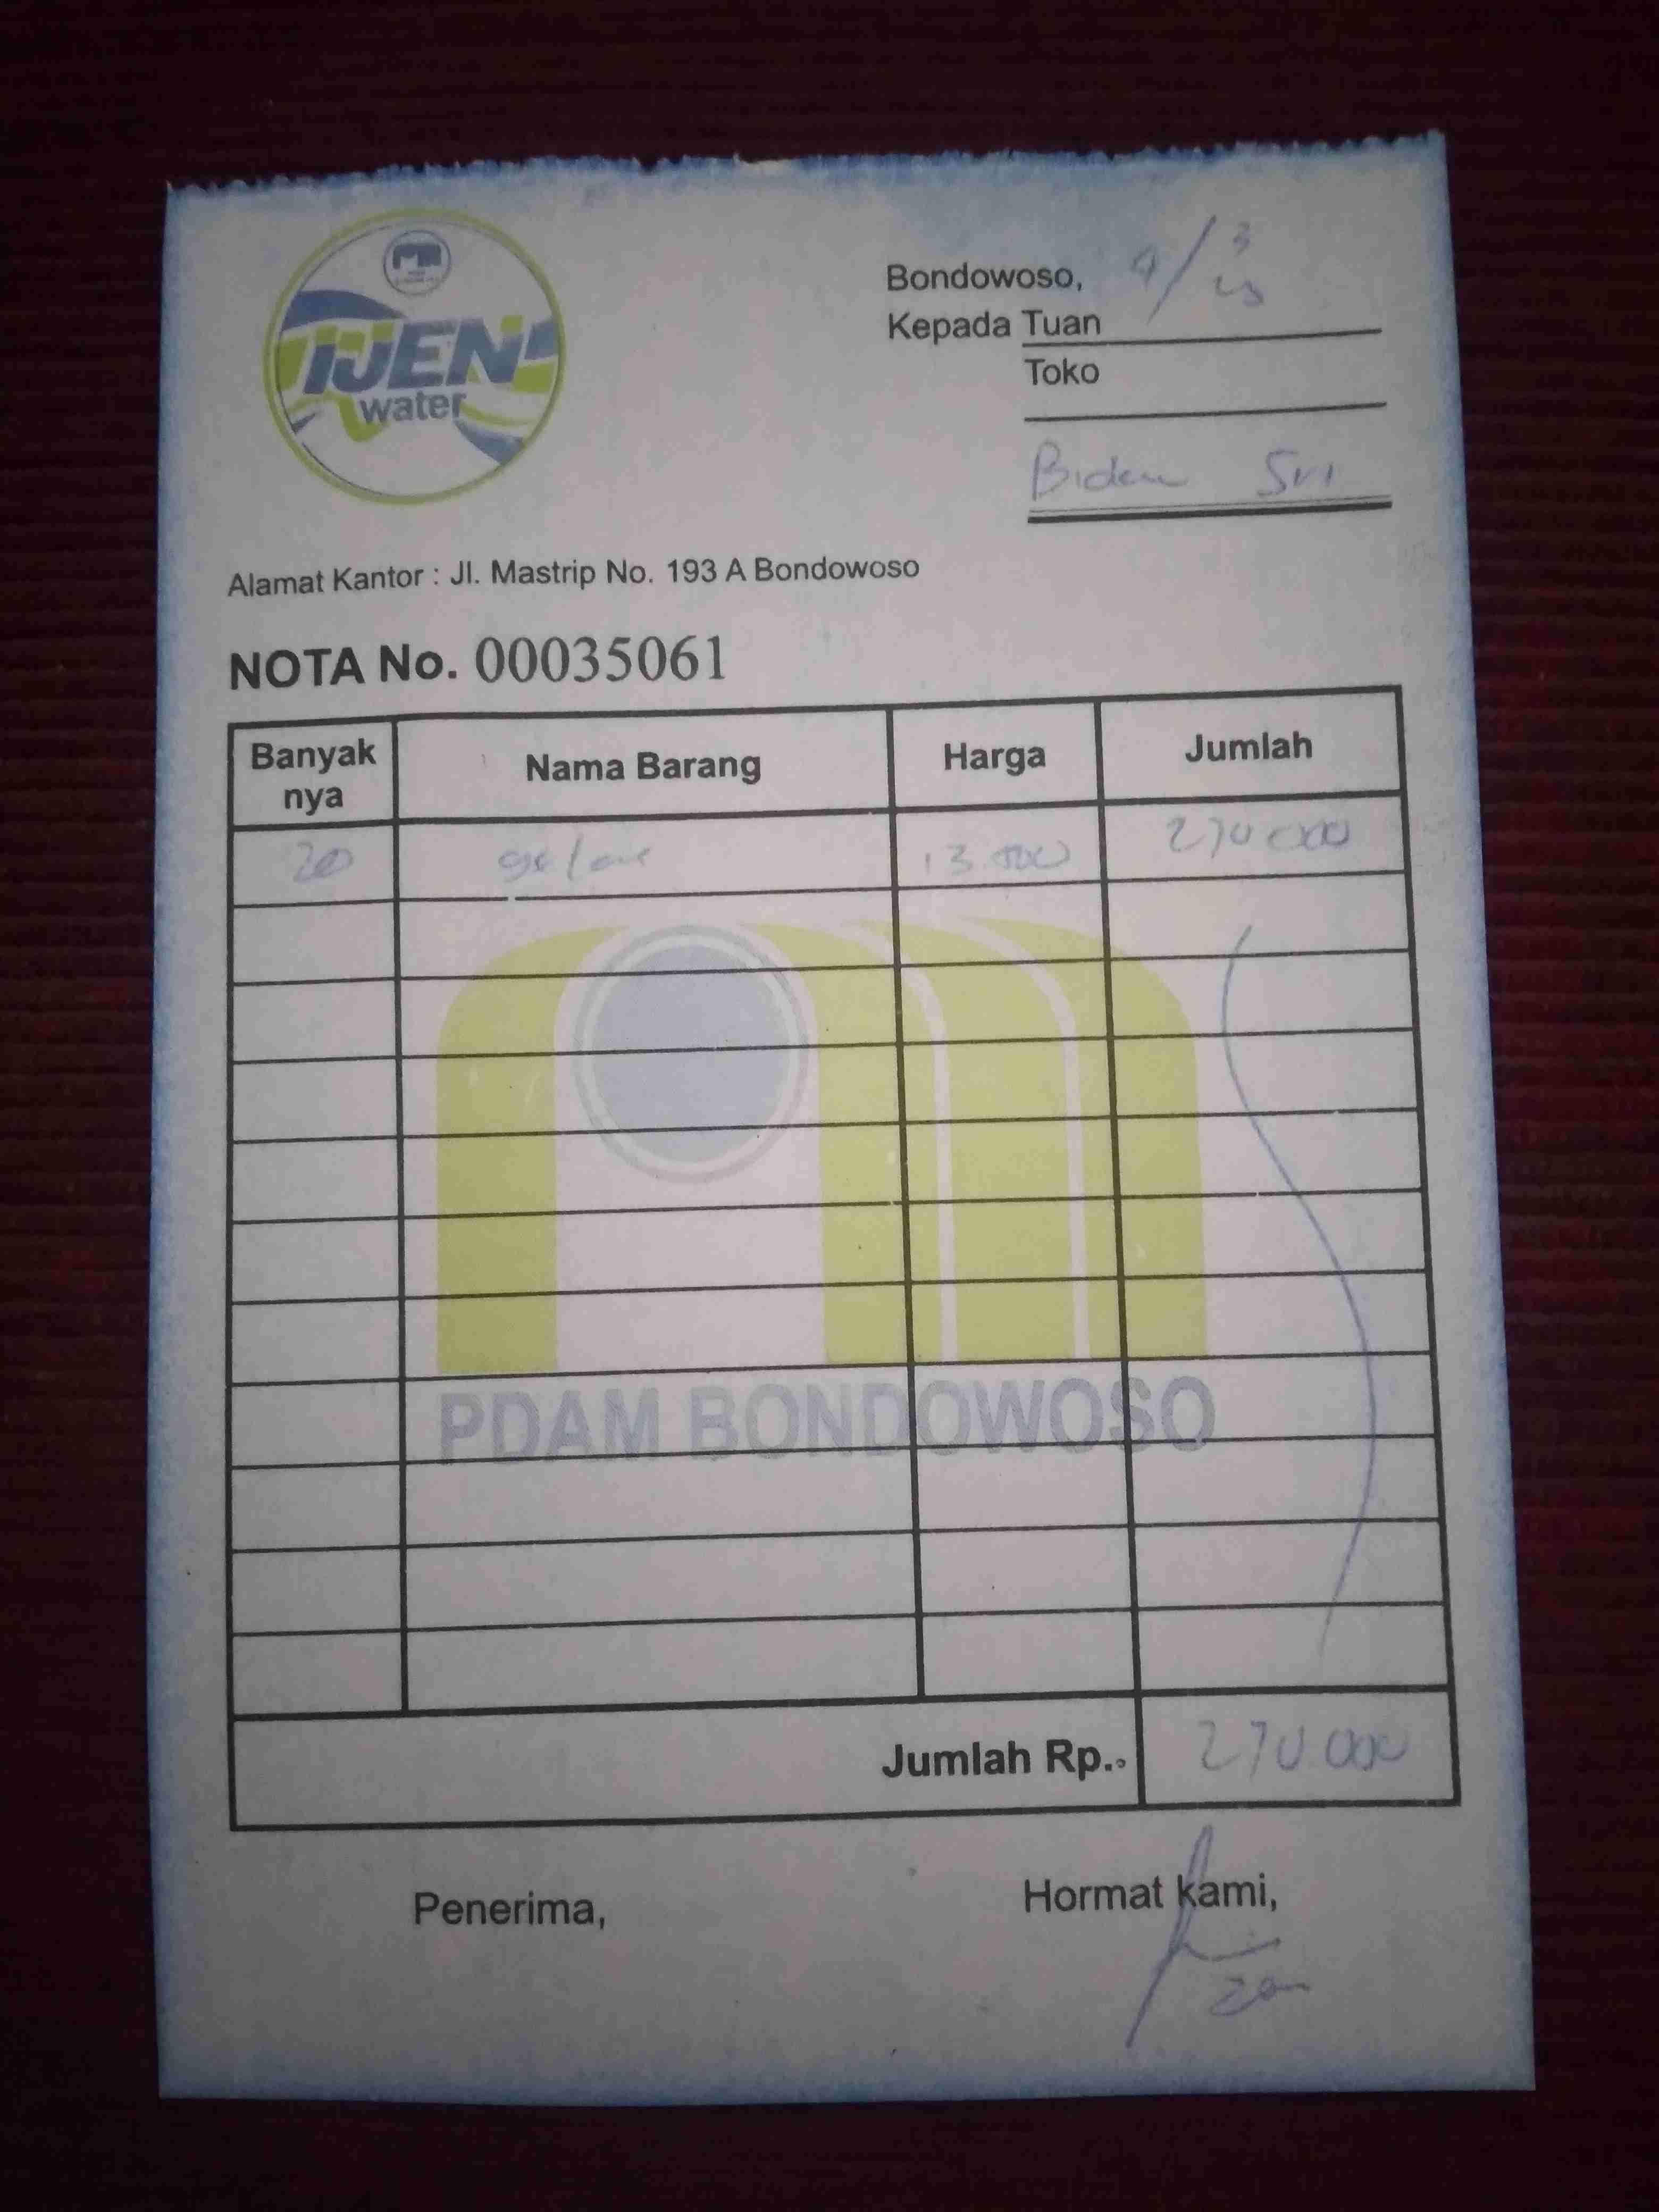 IJEN
water
Bondowoso, 4/3
Kepada Tuan
Toko
Bidan Sri
Alamat Kantor : Jl. Mastrip No. 193 A Bondowoso
NOTA No. 00035061
Banyak nya Nama Barang Harga Jumlah
20 galon 13.500 270.000
PDAM BONDOWOSO
Jumlah Rp. 270.000
Penerima, Hormat kami,